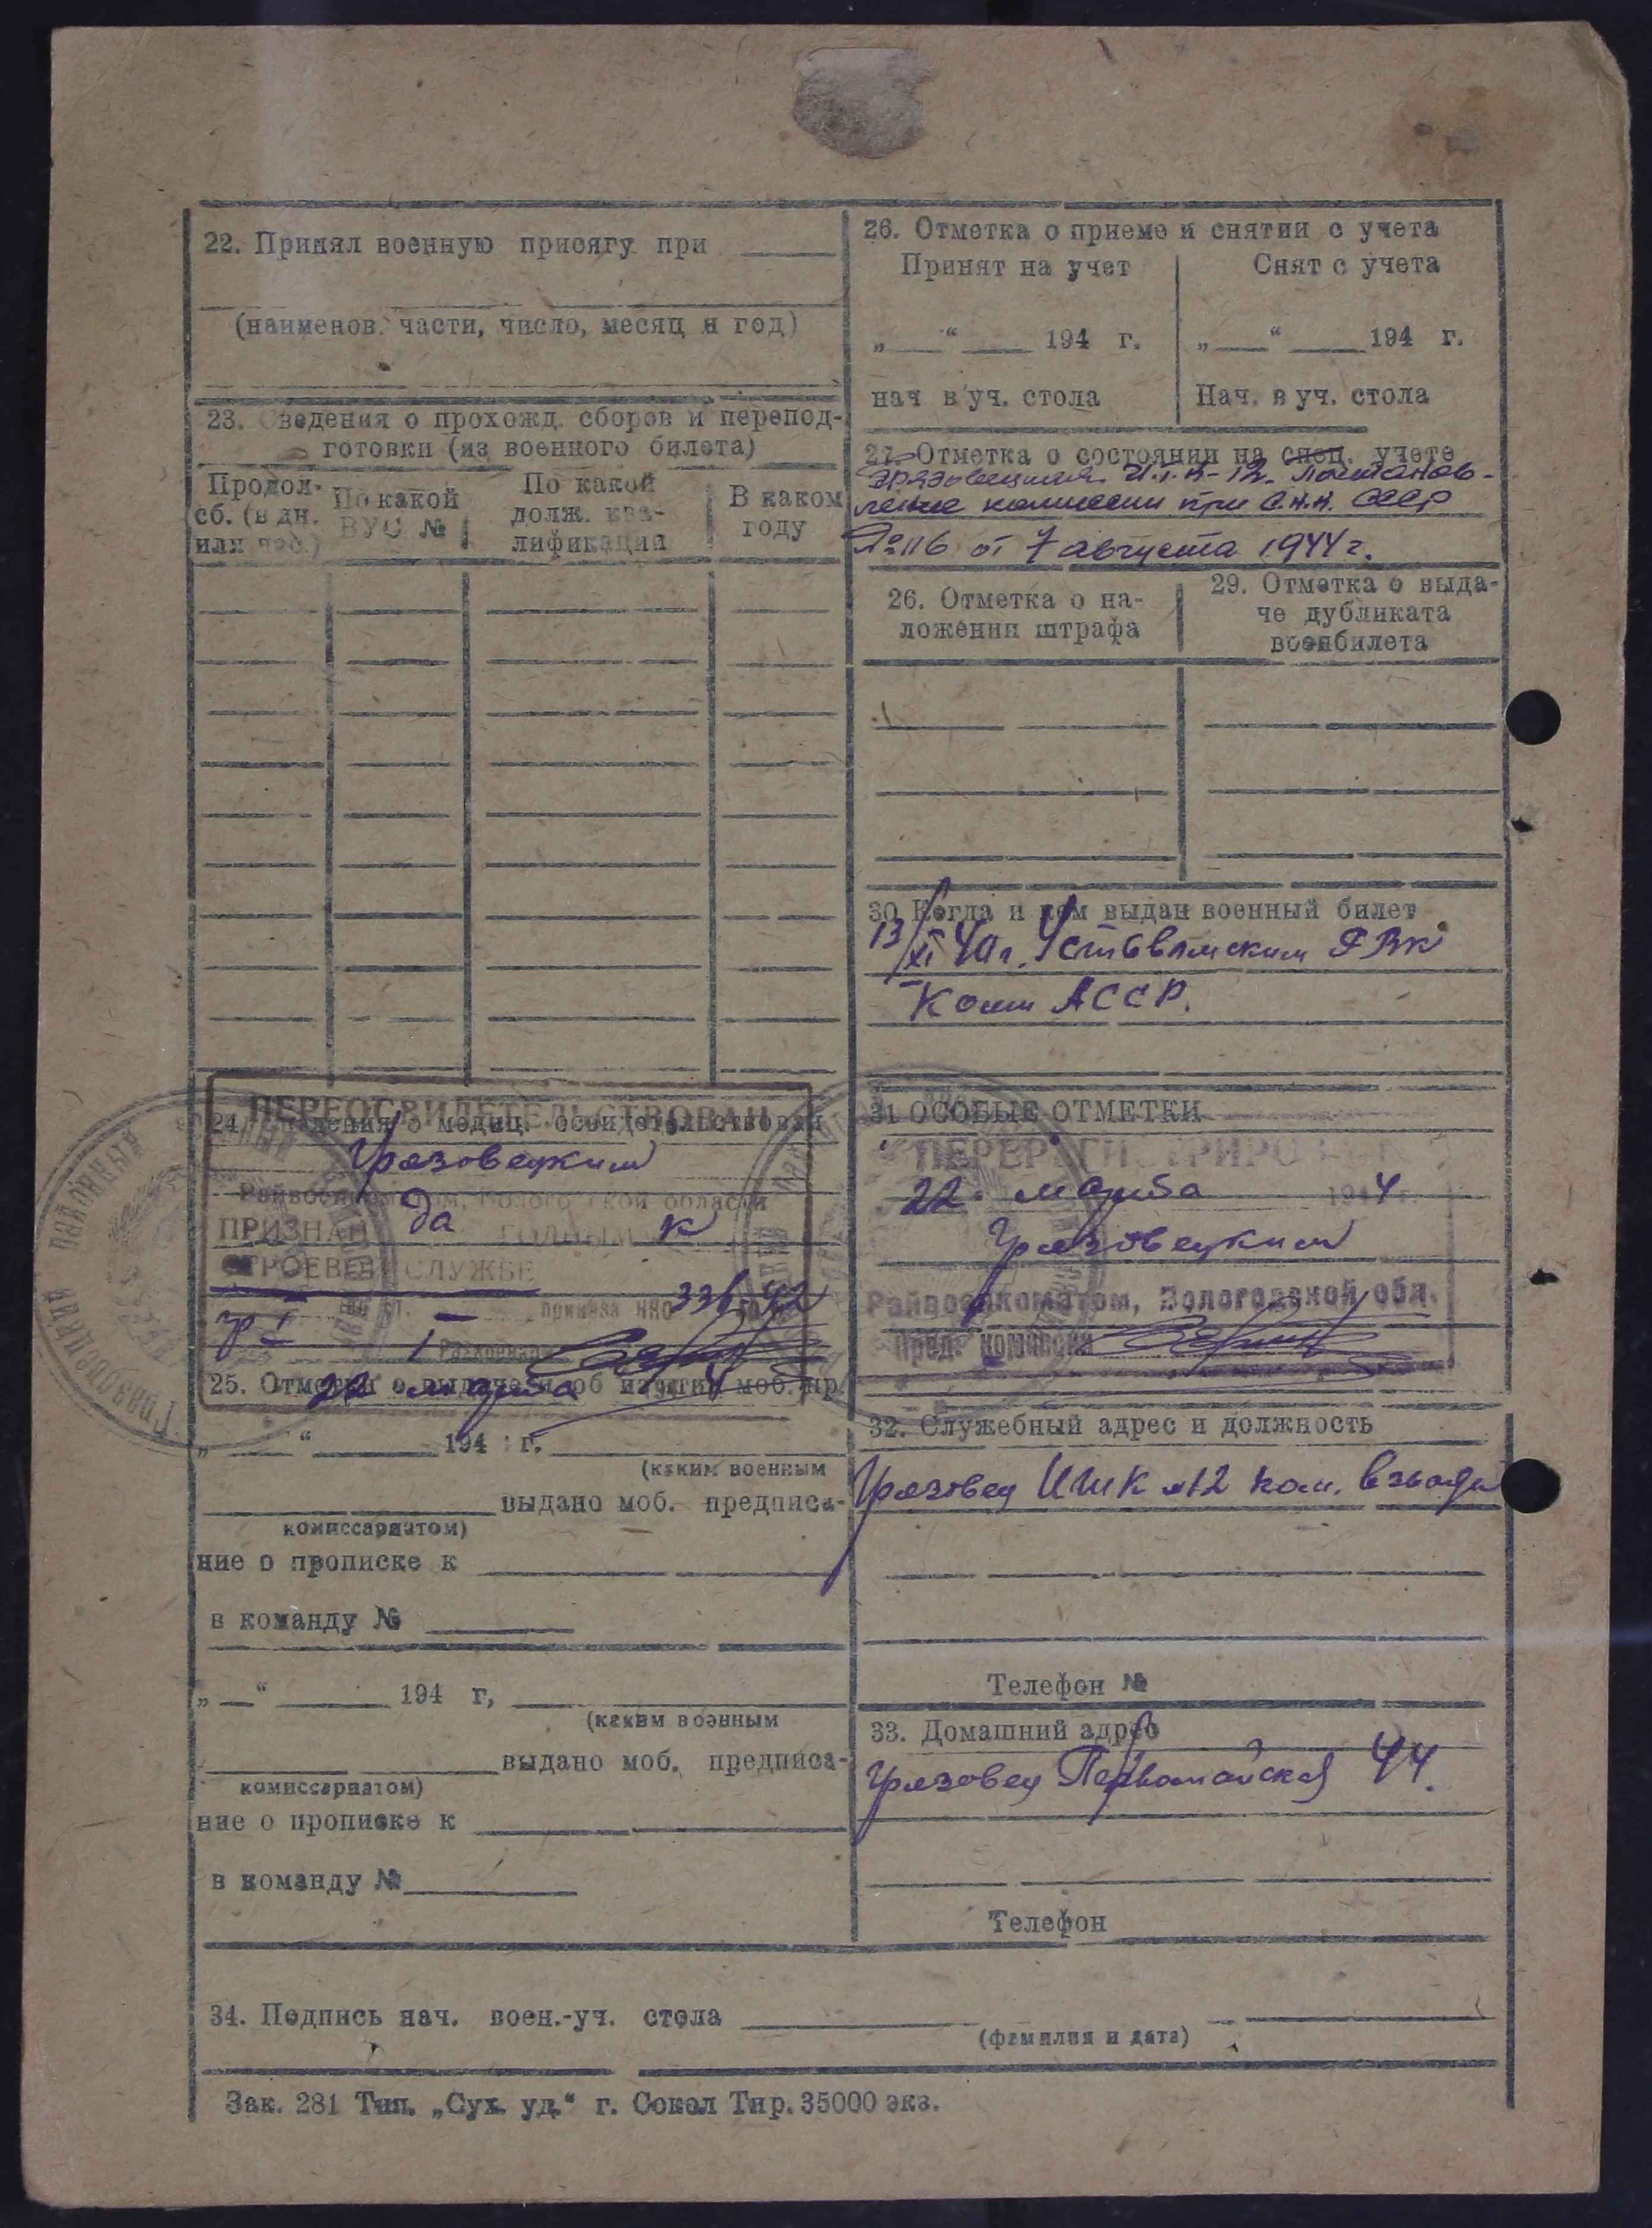 22. Принял военную присягу при
(наименов. части, число, месяц и год)
23. Сведения о прохожд. сборов и перепод-
готовки (из военного билета)
Продол-
сб. (в дн.
или час.)
По какой
ВУС №
По какой
долж. ква-
лификации
В каком
году
ПЕРЕОСВИДЕТЕЛЬСТВОВАН
24. Сведения о медиц. освидетельствован
Грязовецким
Райвоенкоматом, Вологодской области
ПРИЗНАН да ГОДНЫМ к
СТРОЕВОЙ СЛУЖБЕ
гр I I приказа НКО 336 42
22 марта 4
25. Отметки о выдаче и об из'ятии моб. пр.
„ “ 194 г.
(каким военным
выдано моб. предписа-
комиссариатом)
ние о прописке к
в команду №
„ “ 194 г,
(каким военным
выдано моб. предписа-
комиссариатом)
ние о прописке к
в команду №
26. Отметка о приеме и снятии с учета
Принят на учет
Снят с учета
„ “ 194 г.
„ “ 194 г.
нач в уч. стола
Нач. в уч. стола
27. Отметка о состоянии на спец. учете
Грязовецкая И.Т.К-12. Постанов-
ление комиссии при С.Н.К. СССР
№116 от 7 августа 1944 г.
26. Отметка о на-
ложении штрафа
29. Отметка о выда-
че дубликата
военбилета
30 Когда и кем выдан военный билет
13/XI 40 г. Устьвымским РВК
Коми АССР.
31 ОСОБЫЕ ОТМЕТКИ
ПЕРЕРЕГИСТРИРОВАН
22. марта 1944
Грязовецким
Райвоенкоматом, Вологодской обл.
Пред. комиссии
32. Служебный адрес и должность
Грязовец ИТК №12 ком. взвода
Телефон №
33. Домашний адрес
Грязовец Первомайская 44.
Телефон
34. Подпись нач. воен.-уч. стола
(фамилия и дата)
Зак. 281 Тип. „Сух. уд.“ г. Сокол Тир. 35000 экз.